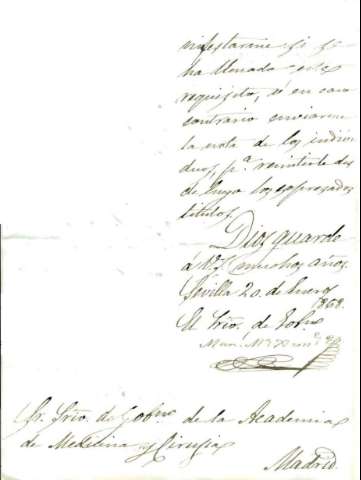 nifestarme si se
ha llenado este
requisito, ó en caso
contrario enviarme
la nota de los indivi
duos, pª. remitirle des
de luego los espresados
titulos.
Dios guarde
á V.S. muchos años.
Sevilla 20 de Enero
1868.
El Srio. de Gobno
Manl. Mª
Sr. Srio de Gobno de la Academia
de Medicina y Cirugia
Madrid.